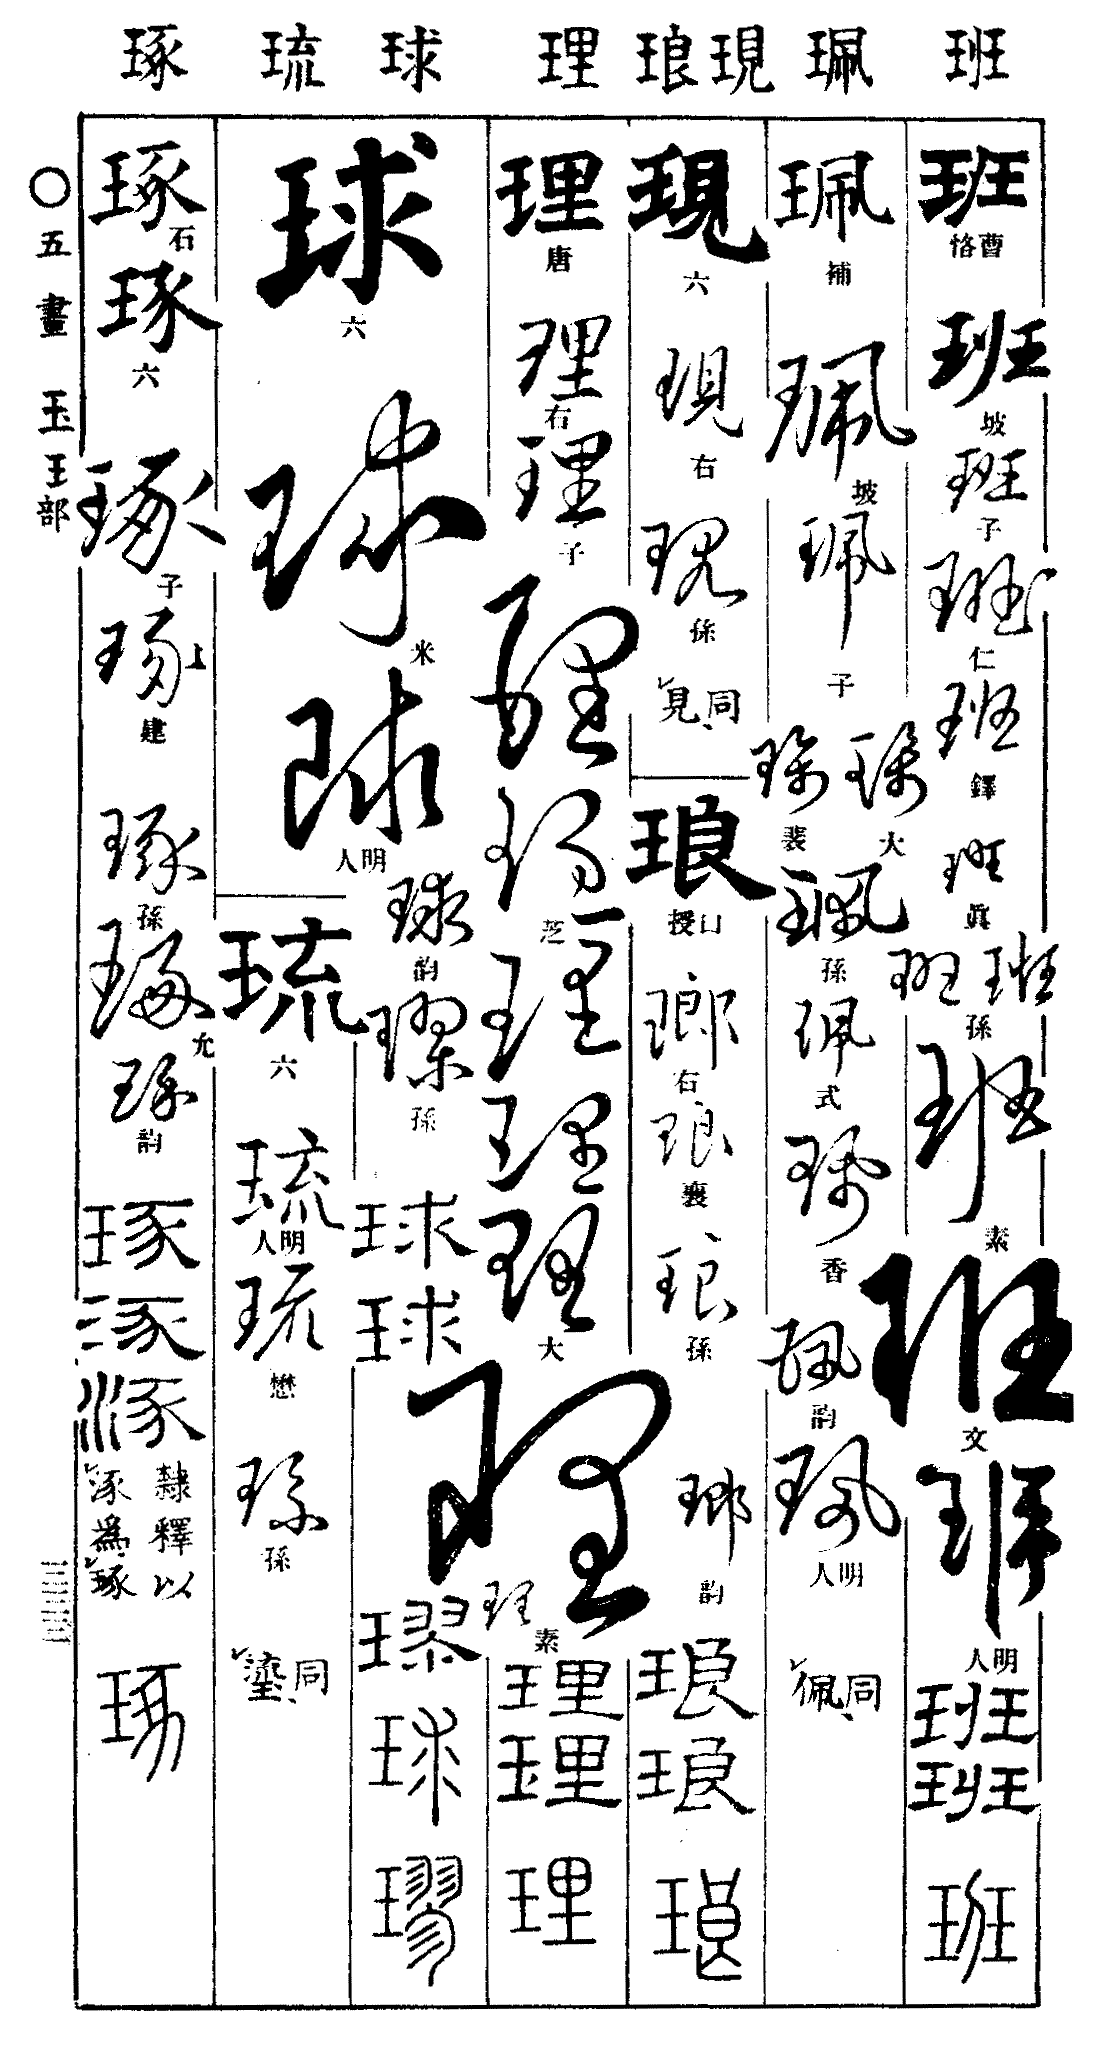 班 珮 現 琅 理 球 琉 琢
班
曹恪
班
坡
班
子
班
仁
班
鐸
班
眞
班 班
孫
班
素
班
文
班
明人
班
班
班
珮
補
珮
坡
珮
子
珮 珮
大 裴
珮
孫
珮
式
珮
香
珮
韵
珮
明人
佩同
現
六
現
右
現
係
見同
琅
授
琅
右
琅
襄
琅
孫
琅
韵
琅
琅
琅
理
唐
理
右
理
子
理
理
芝
理
理
理
大
理
理
素
理
理
理
球
六
球
米
球
明人
球
韵
璆
孫
球
球
璆
球
璆
琉
六
琉
明人
琉
懋
琉
孫
瑬同
琢
石
琢
六
琢
子
琢
建
琢
孫
琢
允
琢
韵
琢
琢
琢
隸釋以
涿為琢
琢
〇五畫 玉王部